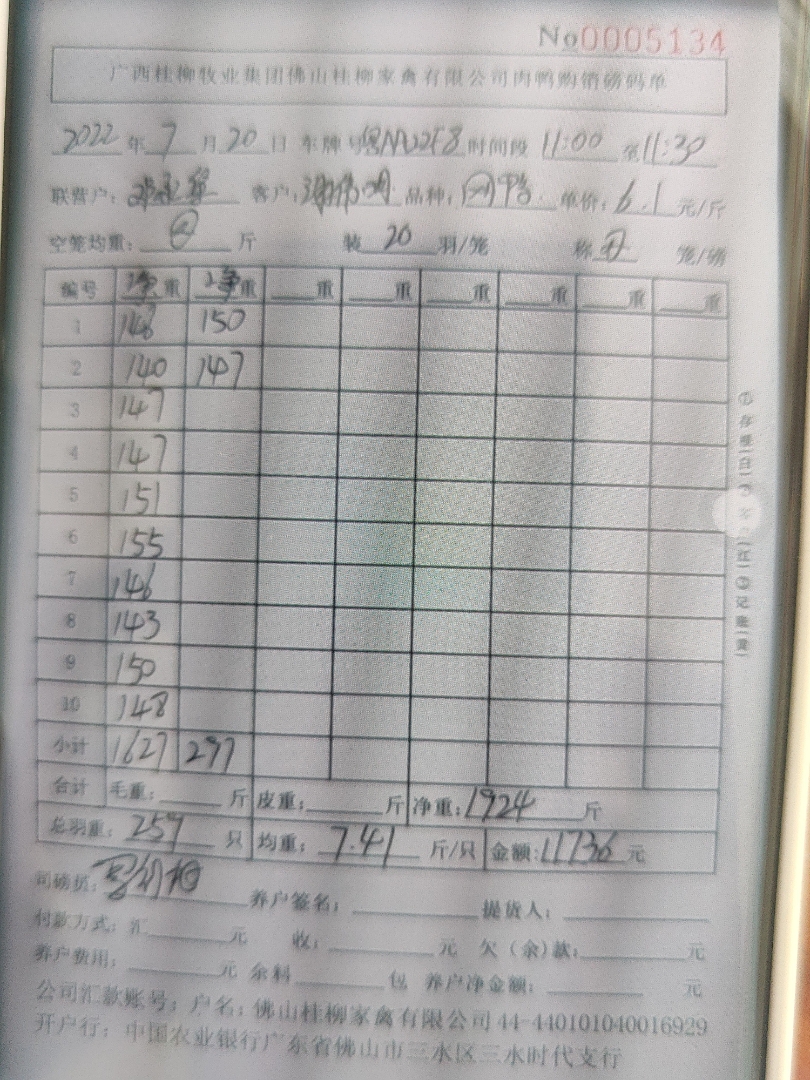 No0005134
广西桂柳牧业集团佛山桂柳家禽有限公司肉鸭购销磅码单
2022 年 7 月 20 日 车牌号 时间段 11:00 至 11:30
联营户: 客户: 品种: 单价: 6.1 元/斤
空笼均重: 斤 装 20 羽/笼 称 笼/磅
编号 净重 净重 重 重 重 重 重 重
1 148 150
2 140 147
3 147
4 147
5 151
6 155
7 146
8 143
9 150
10 148
小计 1627 297
合计 毛重: 斤 皮重: 斤 净重: 1924 斤
总羽重: 259 只 均重: 7.41 斤/只 金额: 11736 元
司磅员: 养户签名: 提货人:
付款方式: 汇 元 收: 元 欠(余)款: 元
养户费用: 元 余料 包 养户净金额: 元
公司汇款账号: 户名: 佛山桂柳家禽有限公司 44-440101040016929
开户行: 中国农业银行广东省佛山市三水区三水时代支行
①存根(白)② (红)③记账(黄)